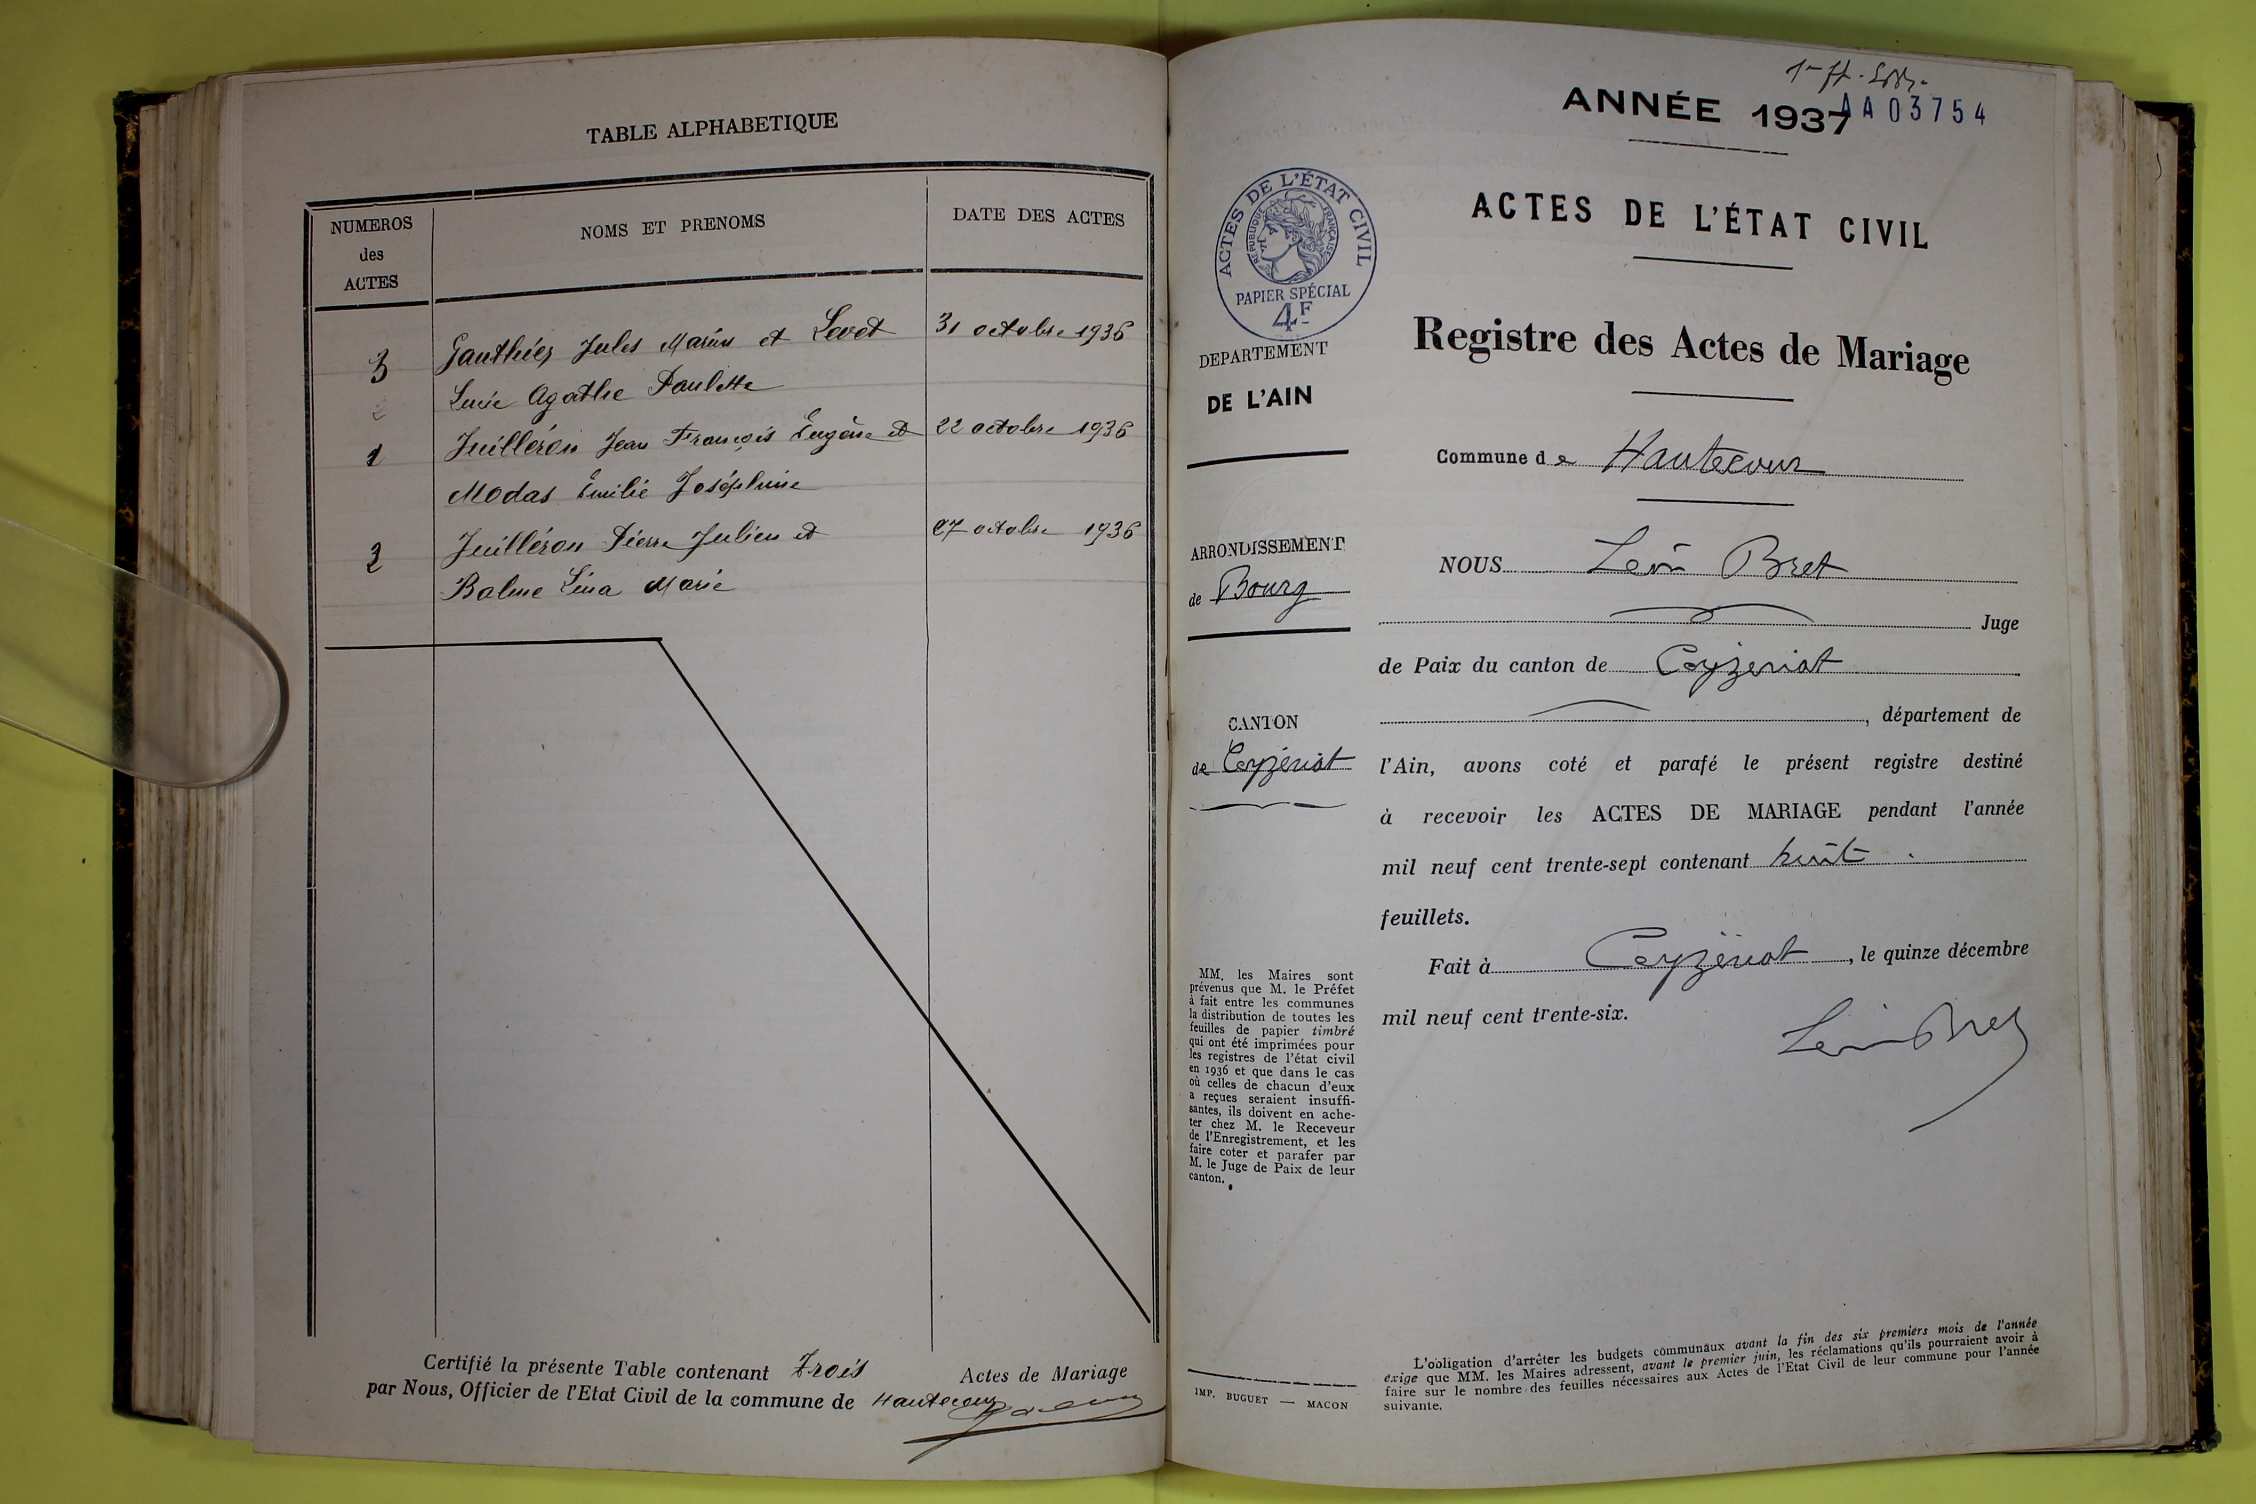 TABLE ALPHABETIQUE
NUMEROS
des
ACTES
NOMS ET PRENOMS
DATE DES ACTES
3
Gauthier, Jules Marius et Levet
31 octobre 1936
Lucie Agathe Paulette
1
Juilléron Jean François Eugène et
22 octobre 1936
Modas Emilie Joséphine
2
Juilléron Pierre Julien et
27 octobre 1936
Balme Lina Marie
Certifié la présente Table contenant Trois Actes de Mariage
par Nous, Officier de l'Etat Civil de la commune de Hautecour
ANNÉE 1937
AA 03754
ACTES DE L'ÉTAT CIVIL
RÉPUBLIQUE FRANÇAISE
PAPIER SPÉCIAL
4F
DEPARTEMENT
DE L'AIN
ARRONDISSEMENT
de Bourg
CANTON
de Ceyzériat
MM. les Maires sont
prévenus que M. le Préfet
à fait entre les communes
la distribution de toutes les
feuilles de papier timbré
qui ont été imprimées pour
les registres de l'état civil
en 1936 et que dans le cas
où celles de chacun d'eux
a reçues seraient insuffi-
santes, ils doivent en ache-
ter chez M. le Receveur
de l'Enregistrement, et les
faire coter et parafer par
M. le Juge de Paix de leur
canton.
IMP. BUGUET — MACON
ACTES DE L'ÉTAT CIVIL
Registre des Actes de Mariage
Commune de Hautecour
NOUS Léon Bret
Juge
de Paix du canton de Ceyzeriat
, département de
l'Ain, avons coté et parafé le présent registre destiné
à recevoir les ACTES DE MARIAGE pendant l'année
mil neuf cent trente-sept contenant huit .
feuillets.
Fait à Ceyzériat, le quinze décembre
mil neuf cent trente-six.
Léon Bret
L'obligation d'arrêter les budgets communaux avant la fin des six premiers mois de l'année
exige que MM. les Maires adressent, avant le premier juin, les réclamations qu'ils pourraient avoir à
faire sur le nombre des feuilles nécessaires aux Actes de l'Etat Civil de leur commune pour l'année
suivante.